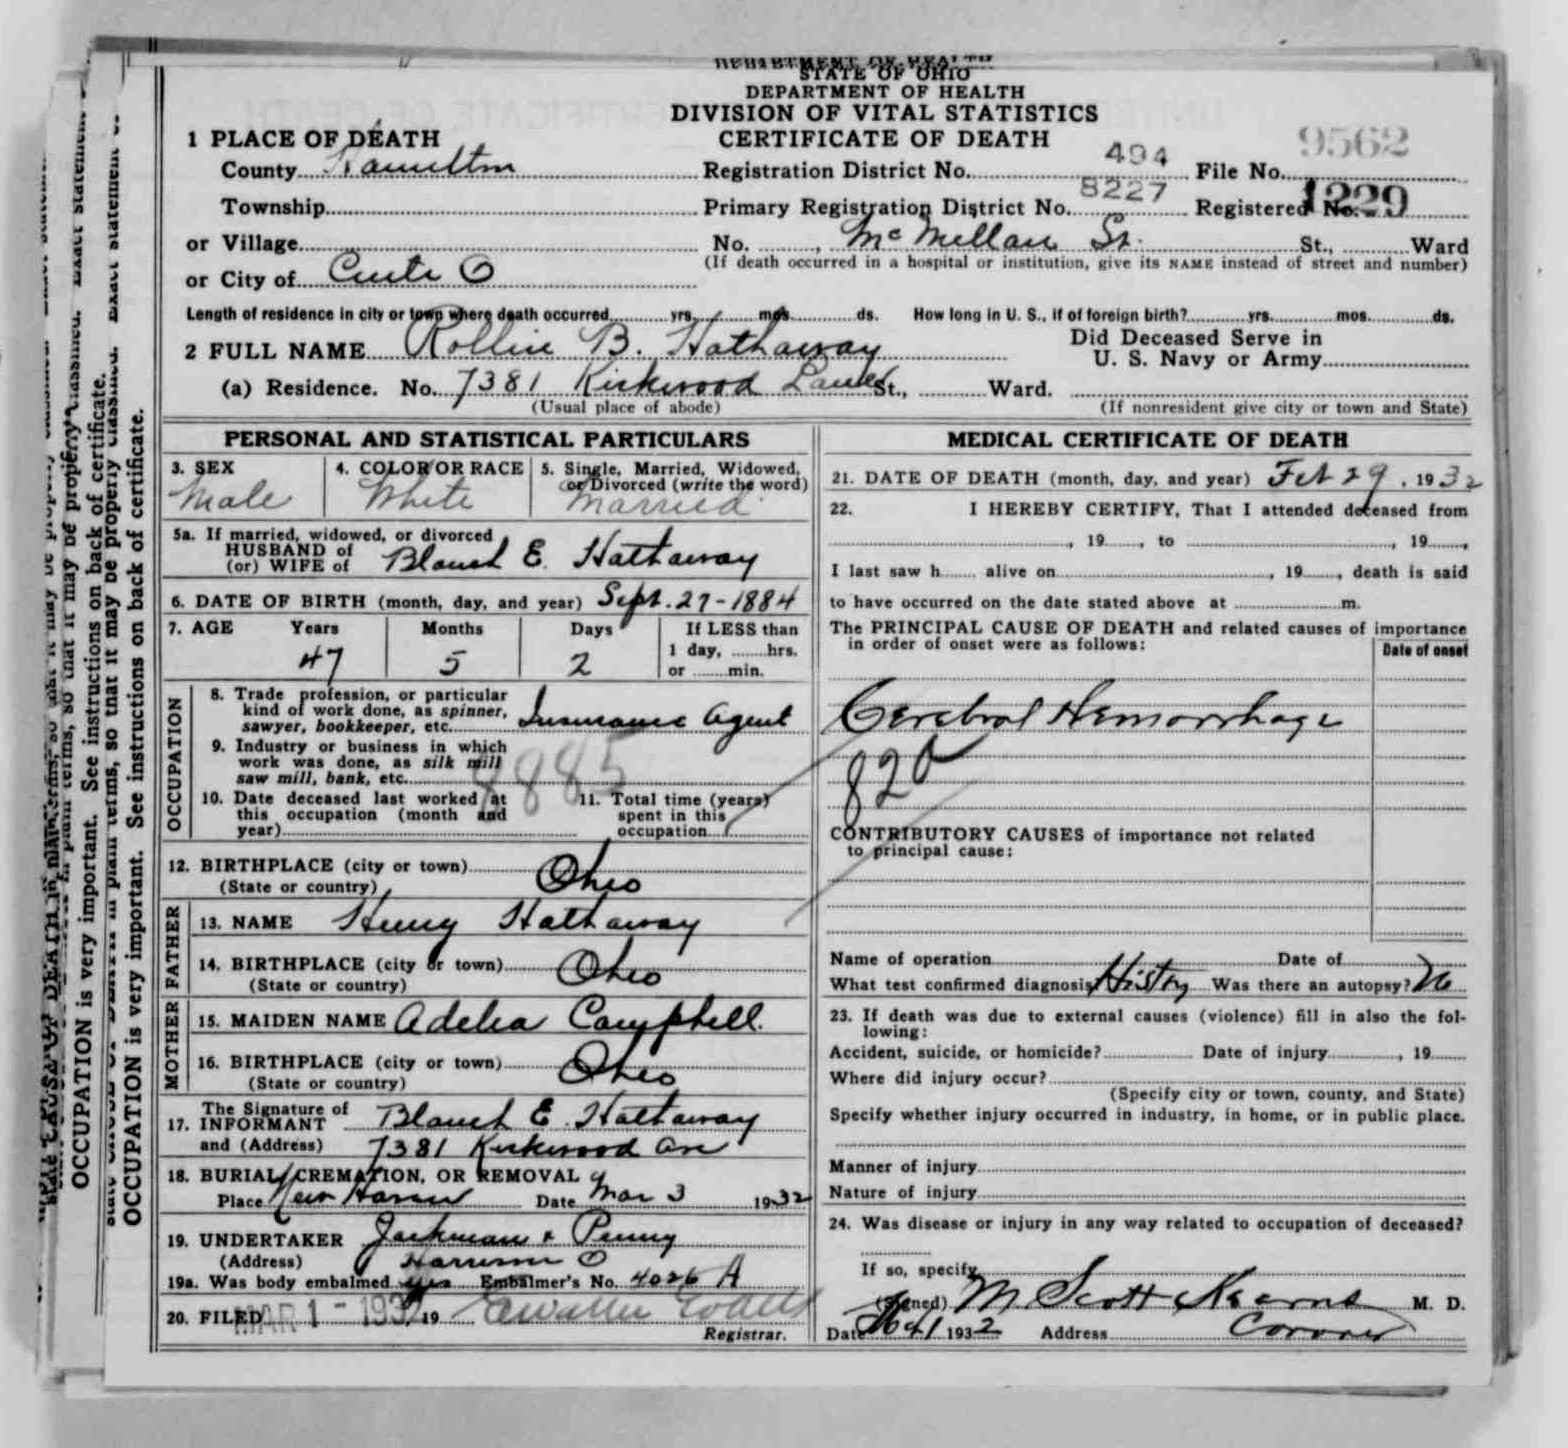 STATE OF OHIO
DEPARTMENT OF HEALTH
DIVISION OF VITAL STATISTICS
CERTIFICATE OF DEATH
1 PLACE OF DEATH
County Hamilton
Registration District No. 494
File No. 9562
Township
Primary Registration District No. 8227
Registered No. 1229
or Village
No. , McMillan St. St., Ward
(If death occurred in a hospital or institution, give its NAME instead of street and number)
or City of Cinti O
Length of residence in city or town where death occurred yrs. mos. ds. How long in U. S., if of foreign birth? yrs. mos. ds.
2 FULL NAME Rollin B. Hathaway
Did Deceased Serve in
U. S. Navy or Army
(a) Residence. No. 7381 Kirkwood Lane St., Ward.
(Usual place of abode)
(If nonresident give city or town and State)
PERSONAL AND STATISTICAL PARTICULARS
3. SEX
Male
4. COLOR OR RACE
White
5. Single, Married, Widowed,
or Divorced (write the word)
Married
5a. If married, widowed, or divorced
HUSBAND of
(or) WIFE of Blanch E. Hathaway
6. DATE OF BIRTH (month, day, and year) Sept. 27-1884
7. AGE Years Months Days If LESS than
1 day, hrs.
or min.
47 5 2
OCCUPATION
8. Trade profession, or particular
kind of work done, as spinner,
sawyer, bookkeeper, etc. Insurance Agent
9. Industry or business in which
work was done, as silk mill
saw mill, bank, etc.
8885
10. Date deceased last worked at
this occupation (month and
year)
11. Total time (years)
spent in this
occupation
12. BIRTHPLACE (city or town) Ohio
(State or country)
FATHER
13. NAME Henry Hathaway
14. BIRTHPLACE (city or town) Ohio
(State or country)
MOTHER
15. MAIDEN NAME Adelia Campbell.
16. BIRTHPLACE (city or town) Ohio
(State or country)
17. The Signature of
INFORMANT Blanch E. Hathaway
and (Address) 7381 Kirkwood Ave
18. BURIAL, CREMATION, OR REMOVAL
Place New Haven Date Mar 3 1932
19. UNDERTAKER Jackman & Penny
(Address) Harrison O
19a. Was body embalmed yes Embalmer's No. 4026 A
20. FILED MAR 1 - 1932, 19
Registrar.
MEDICAL CERTIFICATE OF DEATH
21. DATE OF DEATH (month, day, and year) Feb 29, 1932
22. I HEREBY CERTIFY, That I attended deceased from
, 19 , to , 19 ,
I last saw h alive on , 19 , death is said
to have occurred on the date stated above at m.
The PRINCIPAL CAUSE OF DEATH and related causes of importance
in order of onset were as follows:
Date of onset
Cerebral Hemorrhage
82a
CONTRIBUTORY CAUSES of importance not related
to principal cause:
Name of operation Date of
What test confirmed diagnosis History Was there an autopsy? No
23. If death was due to external causes (violence) fill in also the fol-
lowing:
Accident, suicide, or homicide? Date of injury , 19
Where did injury occur?
(Specify city or town, county, and State)
Specify whether injury occurred in industry, in home, or in public place.
Manner of injury
Nature of injury
24. Was disease or injury in any way related to occupation of deceased?
If so, specify
(Signed) M. Scott Kearns M. D.
Date 1932 Address Coroner
OCCUPATION is very important. See instructions on back of certificate.
OCCUPATION is very important. See instructions on back of certificate.